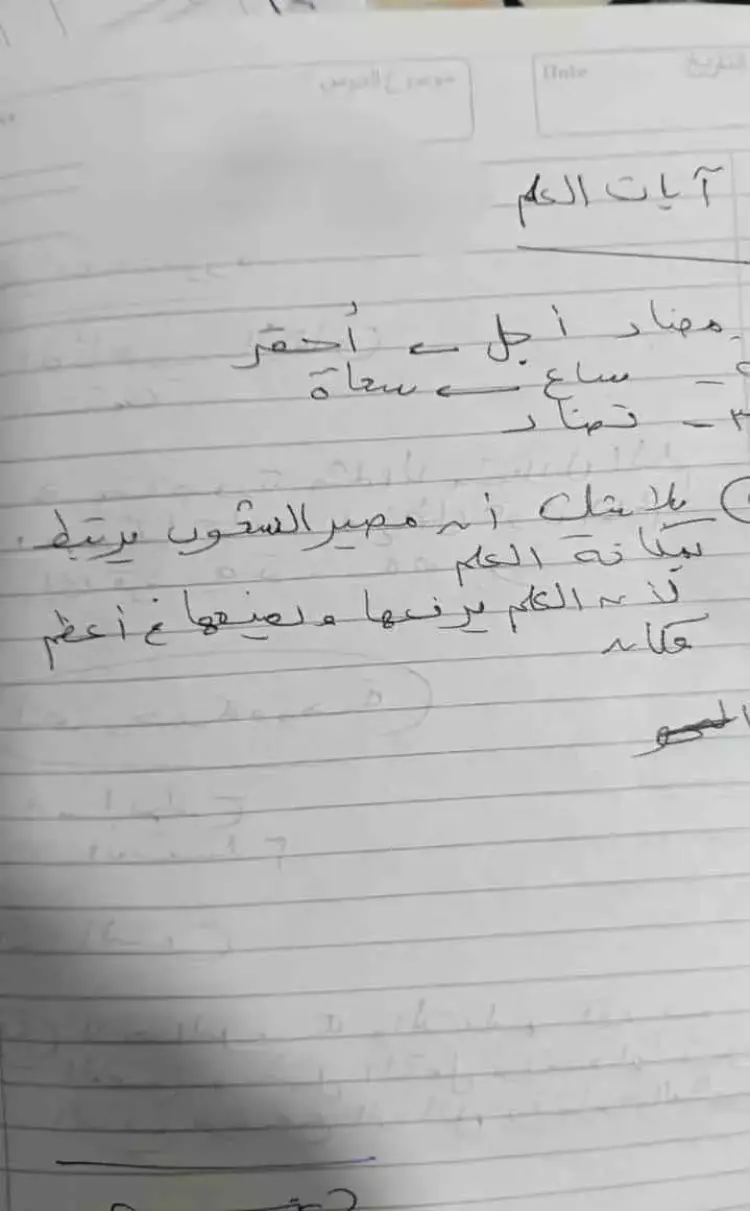 التاريخ
Date
موضوع الدرس
آيات العلم
مضاد أجل ← أحقر
٢- ساع ← سعاة
٣- تضاد
بلا شك أن مصير الشعوب يرتبط
بمكانة العلم
لأن العلم يرفعها ويضعها في أعظم
مكان